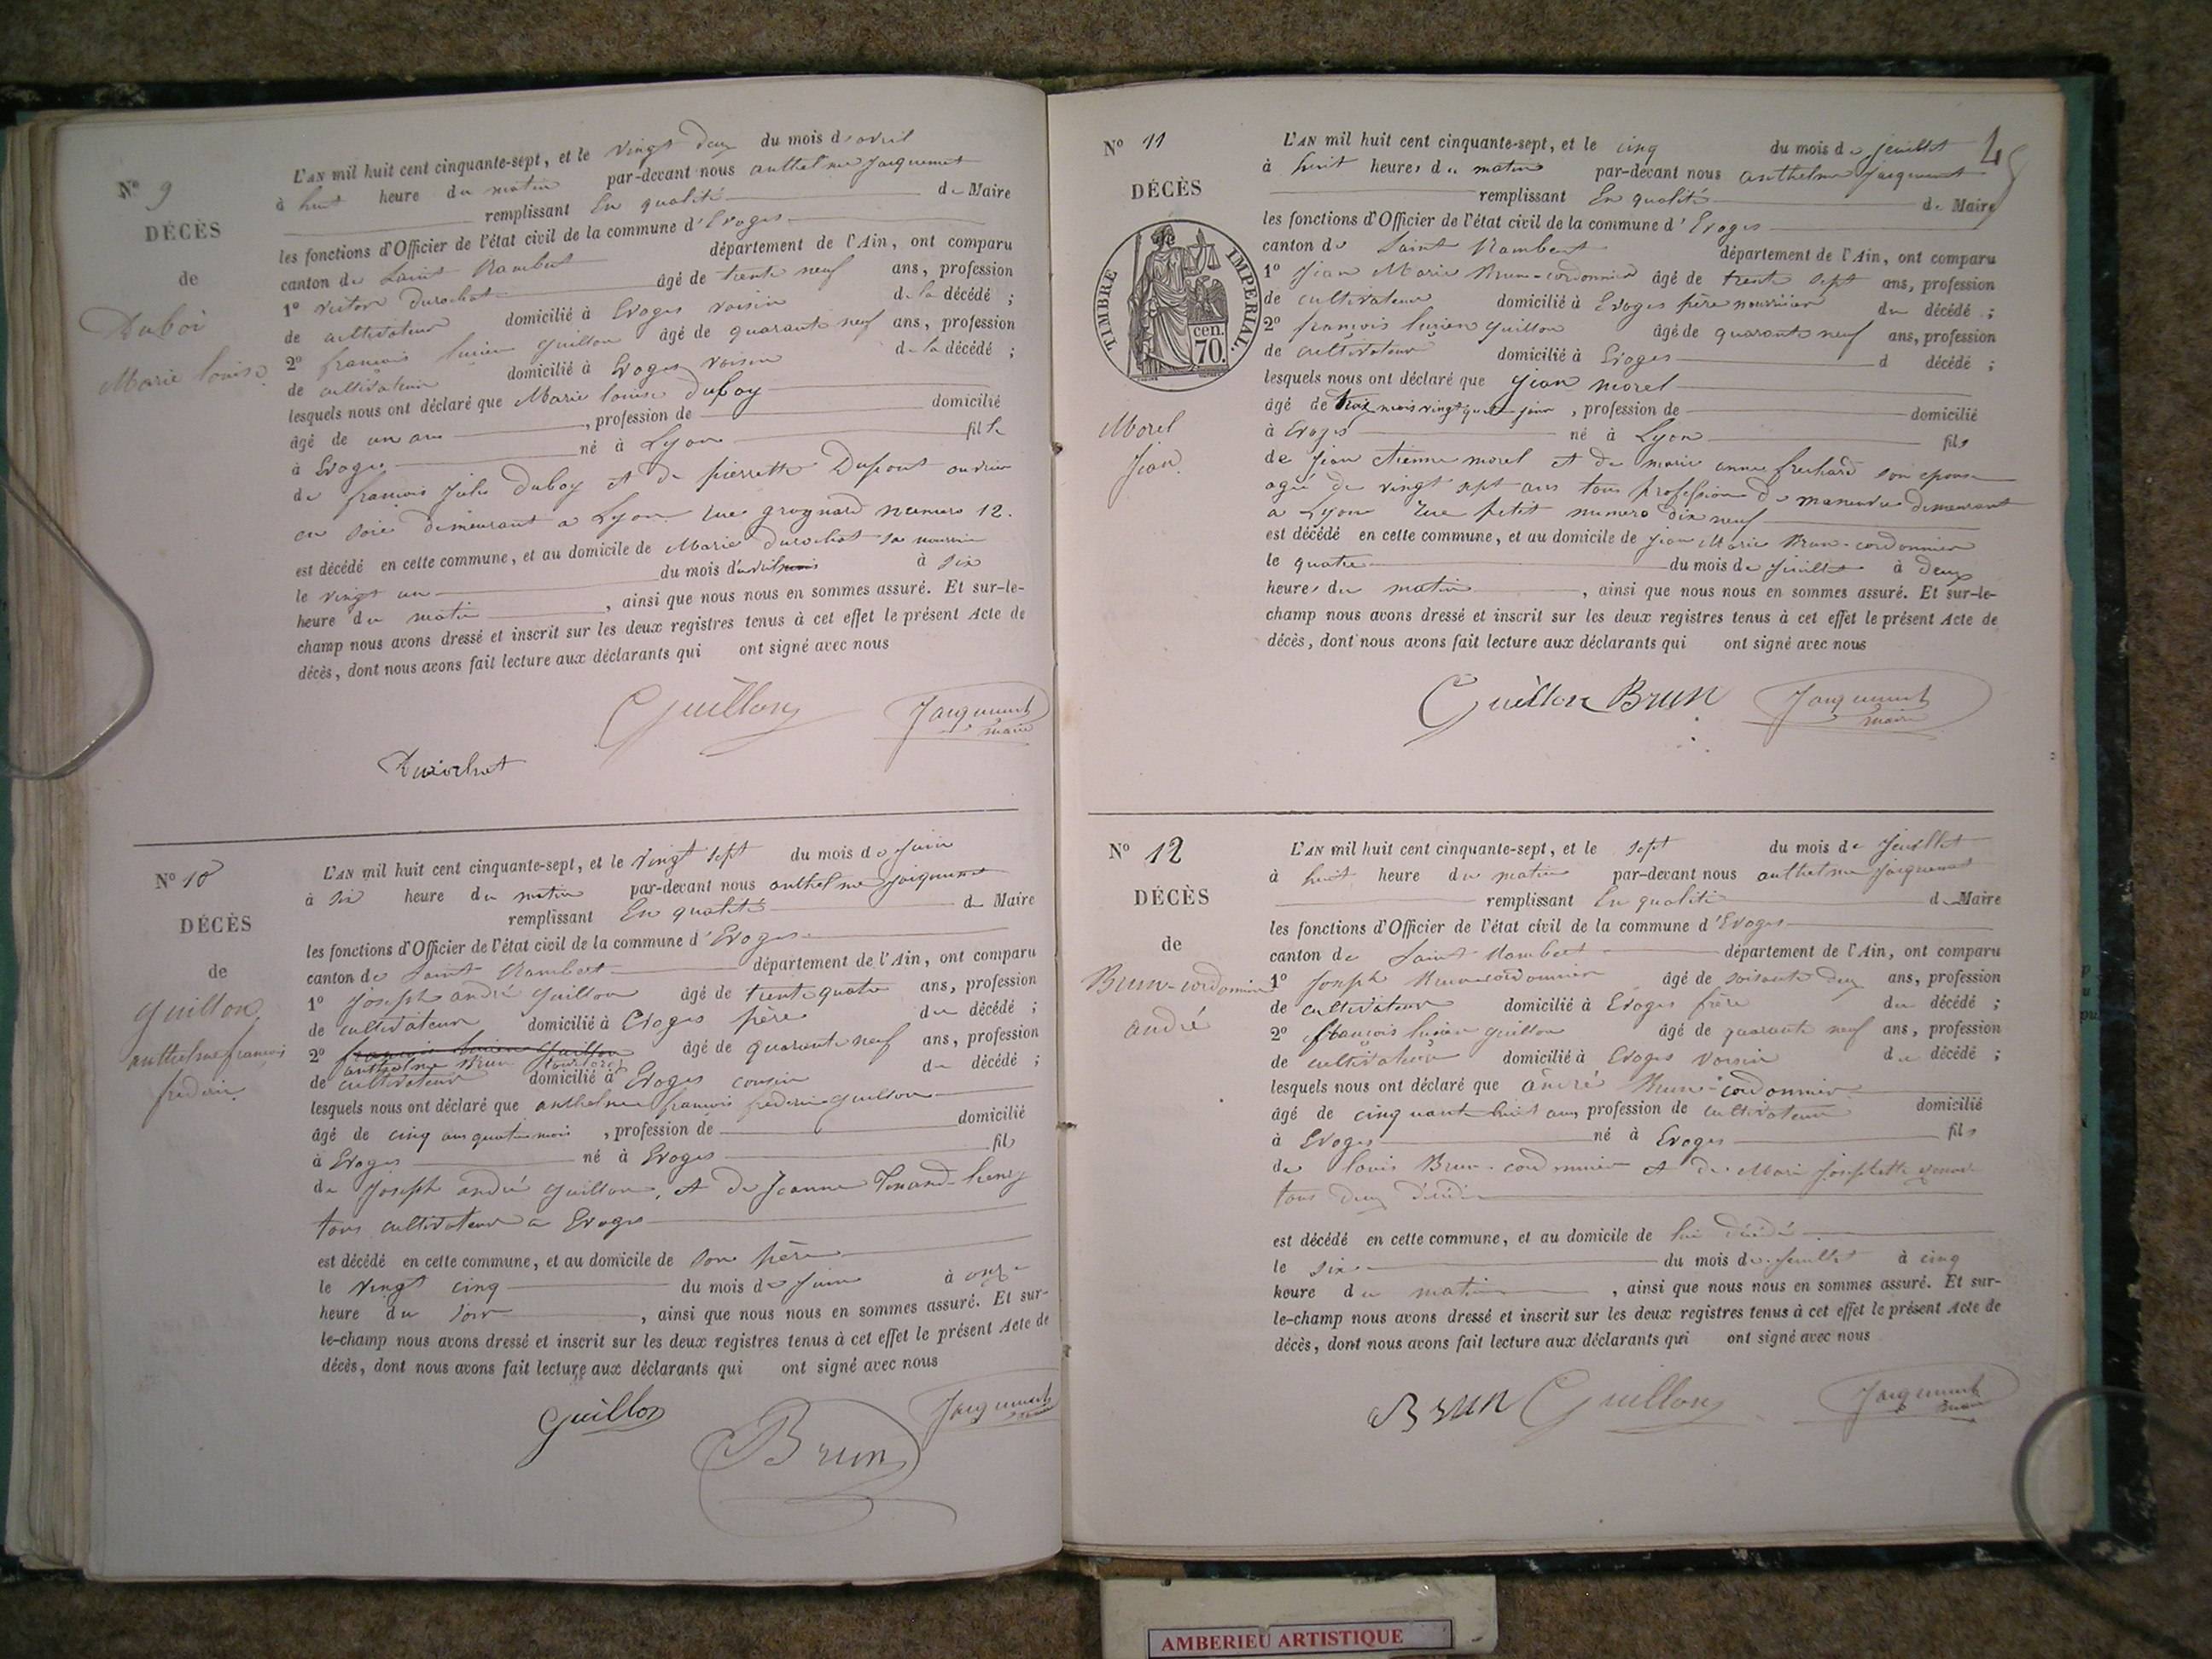 Nº 9
DÉCÈS
de
Duboi
Marie louise
L'AN mil huit cent cinquante-sept, et le vingt deux du mois d'avril
à huit heure du matin par-devant nous anthelme Jacquemet
remplissant En qualité de Maire
les fonctions d'Officier de l'état civil de la commune d'Evoges
canton de Saint Rambert département de l'Ain, ont comparu
1º victor Durochat âgé de trente neuf ans, profession
de cultivateur domicilié à Evoges voisin de la décédé ;
2º françois lucien guillon âgé de quarante neuf ans, profession
de cultivateur domicilié à Evoges voisin de la décédé ;
lesquels nous ont déclaré que Marie louise duboy
âgé de un an , profession de domicilié
à Evoges né à Lyon fille
de françois Jules Duboy et de pierrette Dupont ouvrier
en soie demeurant a Lyon rue grognard numero 12.
est décédé en cette commune, et au domicile de Marie Durochat sa nourrice
le vingt un du mois d'avril à six
heure du matin , ainsi que nous nous en sommes assuré. Et sur-le-
champ nous avons dressé et inscrit sur les deux registres tenus à cet effet le présent Acte de
décès, dont nous avons fait lecture aux déclarants qui ont signé avec nous
Guillon Jacquemet
maire
Durochat
Nº 10
DÉCÈS
de
guillon
anthelme françois
L'AN mil huit cent cinquante-sept, et le vingt sept du mois de juin
à six heure du matin par-devant nous anthelme Jacquemet
remplissant En qualité de Maire
les fonctions d'Officier de l'état civil de la commune d'Evoges
canton de Saint Rambert département de l'Ain, ont comparu
1º joseph andré guillon âgé de trente quatre ans, profession
de cultivateur domicilié à Evoges père du décédé ;
2º françois lucien Guillon âgé de quarante neuf ans, profession
anthelme Brun
de cultivateur domicilié à Evoges cousin du décédé ;
lesquels nous ont déclaré que anthelme françois guillon
âgé de cinq ans quatre mois , profession de domicilié
à Evoges né à Evoges fils
de Joseph andré guillon, et de Jeanne
tous cultivateur a Evoges
est décédé en cette commune, et au domicile de son père
le vingt cinq du mois de juin à onze
heure du soir , ainsi que nous nous en sommes assuré. Et sur-
le-champ nous avons dressé et inscrit sur les deux registres tenus à cet effet le présent Acte de
décès, dont nous avons fait lecture aux déclarants qui ont signé avec nous
Guillon Jacquemet
Brun
Nº 11
DÉCÈS
TIMBRE IMPERIAL.
cen.
70.
Morel
Jean
L'AN mil huit cent cinquante-sept, et le cinq du mois de juillet
à huit heures du matin par-devant nous anthelme Jacquemet
remplissant En qualité de Maire
les fonctions d'Officier de l'état civil de la commune d'Evoges
canton de Saint Rambert département de l'Ain, ont comparu
1º Jean Marie Brun-cordonnier âgé de trente sept ans, profession
de cultivateur domicilié à Evoges père nourricier du décédé ;
2º françois lucien guillon âgé de quarante neuf ans, profession
de cultivateur domicilié à Evoges d décédé ;
lesquels nous ont déclaré que Jean morel
âgé de trois mois vingt quatre jour , profession de domicilié
à Evoges né à Lyon fils
de Jean etienne morel et de marie anne son epouse
agée de vingt sept ans tous profession de maneuvre demeurant
a Lyon rue petit numero dix neuf
est décédé en cette commune, et au domicile de Jean Marie Brun-cordonnier
le quatre du mois de juillet à deux
heures du matin , ainsi que nous nous en sommes assuré. Et sur-le-
champ nous avons dressé et inscrit sur les deux registres tenus à cet effet le présent Acte de
décès, dont nous avons fait lecture aux déclarants qui ont signé avec nous
Guillon Brun Jacquemet
maire
Nº 12
DÉCÈS
de
Brun-cordonnier
andré
L'AN mil huit cent cinquante-sept, et le sept du mois de Juillet
à huit heure du matin par-devant nous anthelme Jacquemet
remplissant En qualité de Maire
les fonctions d'Officier de l'état civil de la commune d'Evoges
canton de Saint Rambert département de l'Ain, ont comparu
1º Joseph Brun-cordonnier âgé de soixante deux ans, profession
de cultivateur domicilié à Evoges frère du décédé ;
2º françois lucien guillon âgé de quarante neuf ans, profession
de cultivateur domicilié à Evoges voisin du décédé ;
lesquels nous ont déclaré que andré Brun-cordonnier
âgé de cinquante huit ans, profession de cultivateur domicilié
à Evoges né à Evoges fils
de louis Brun-cordonnier et de Marie Josephette
tous deux décédé
est décédé en cette commune, et au domicile de lui décédé
le six du mois de juillet à cinq
heure du matin , ainsi que nous nous en sommes assuré. Et sur-
le-champ nous avons dressé et inscrit sur les deux registres tenus à cet effet le présent Acte de
décès, dont nous avons fait lecture aux déclarants qui ont signé avec nous
Brun Guillon Jacquemet
maire
AMBERIEU ARTISTIQUE